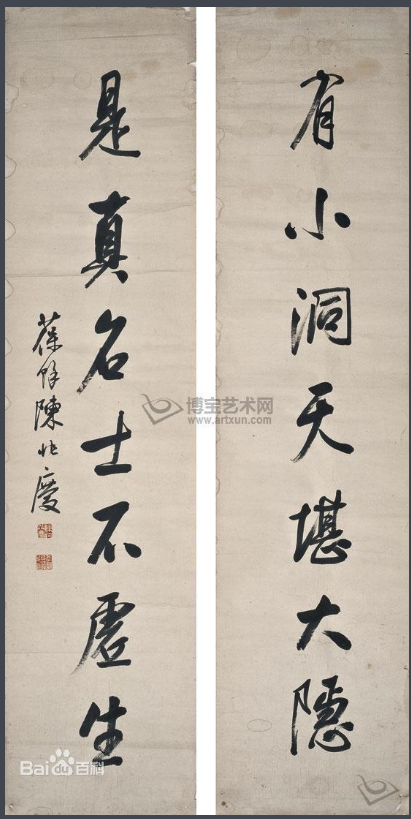 有小洞天堪大隐
是真名士不虚生
葆馀陈兆庆
博宝艺术网
www.artxun.com
Bai du 百科